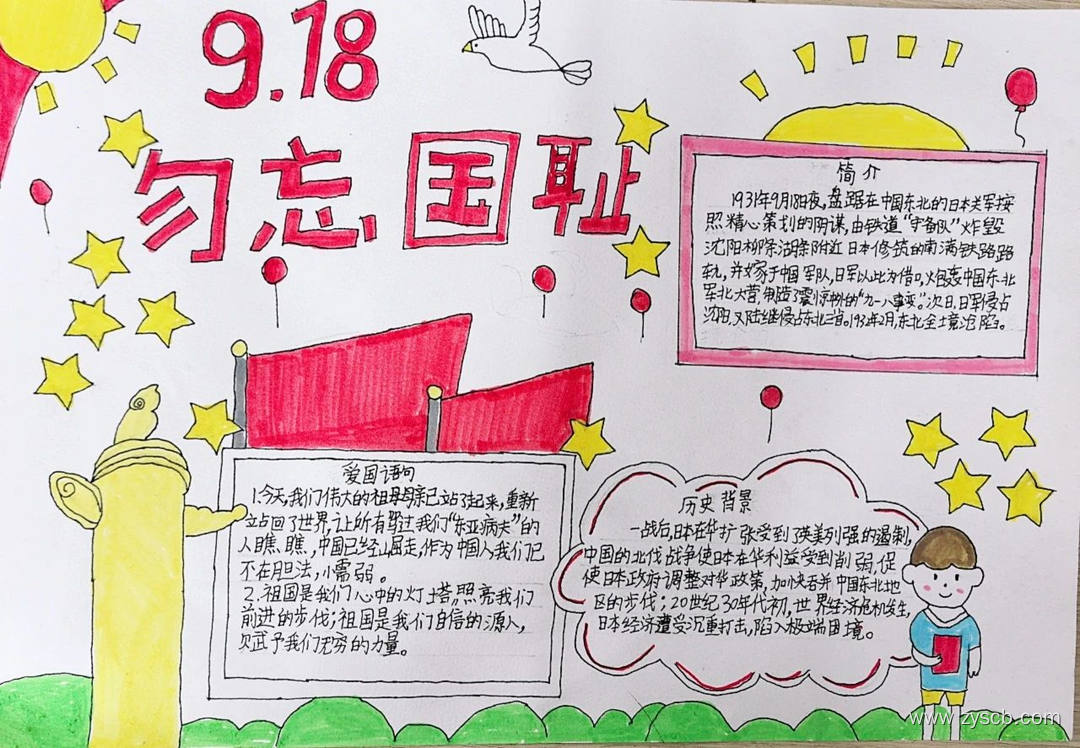 9.18
勿忘国耻
简介
1931年9月18日夜,盘踞在中国东北的日本关军按
照精心策划的阴谋,由铁道“守备队”炸毁
沈阳柳条湖条附近日本修筑的南满铁路路
轨,并嫁于中国军队,日军以此为借口,炮轰中国东北
军北大营,制造了震惊中外的“九一八事变”。次日,日军侵占
沈阳,又陆继侵占东北三省。1932年2月,东北全境沦陷。
爱国语句
1.今天我们伟大的祖国母亲已立占了起来,重新
立占回了世界,让所有骂过我们“东亚病夫”的
人瞧瞧,中国已经山崛走,作为中国人我们已
不在胆法,小需弱。
2.祖国是我们心中的灯塔,照亮我们
前进的步伐;祖国是我们自信的源人,
赋予我们无穷的力量。
历史背景
一战后,日本在华扩张受到了英美列强的遏制,
中国的北伐战争使日本在华利益受到削弱,促
使日本政府调整对华政策,加快吞并中国东北地
区的步伐;20世纪30年代初,世界经济危机发生,
日本经济遭受沉重打击,陷入极端困境。
www.zyscb.com